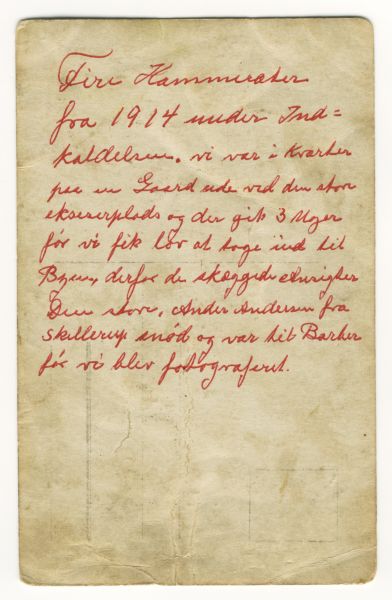 Fire Kammerater
fra 1914 under Ind=
kaldelsen. vi var i Kvarter
paa en Gaard ude ved den store
ekserserplads og der gik 3 Uger
før vi fik lov at tage ind til
Byen, derfor de skæggede Ansigter
Den store, Anders Andersen fra
Skellerup snød og var til Barber
før vi blev fotograferet.